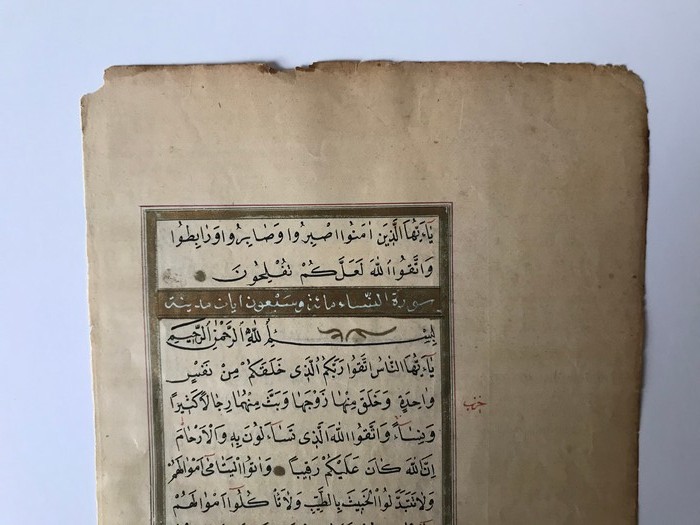 يَاءَيُّهَا الَّذِينَ اٰمَنُوا اصْبِرُوا وَصَابِرُوا وَرَابِطُوا
وَاتَّقُوا اللّٰهَ لَعَلَّكُمْ تُفْلِحُونَ
سورة النساء مائة وسبعون ايات مدينة
بِسْمِ اللّٰهِ الرَّحْمٰنِ الرَّحِيمِ
يَاءَيُّهَا النَّاسُ اتَّقُوا رَبَّكُمُ الَّذِي خَلَقَكُمْ مِنْ نَفْسٍ
وَاحِدَةٍ وَخَلَقَ مِنْهَا زَوْجَهَا وَبَثَّ مِنْهُمَا رِجَالًا كَثِيرًا
حزب
وَنِسَاءً وَاتَّقُوا اللّٰهَ الَّذِي تَسَاءَلُونَ بِهِ وَالْاَرْحَامَ
اِنَّ اللّٰهَ كَانَ عَلَيْكُمْ رَقِيبًا وَاٰتُوا الْيَتَامٰى اَمْوَالَهُمْ
وَلَا تَتَبَدَّلُوا الْخَبِيثَ بِالطَّيِّبِ وَلَا تَأْكُلُوا اَمْوَالَهُمْ